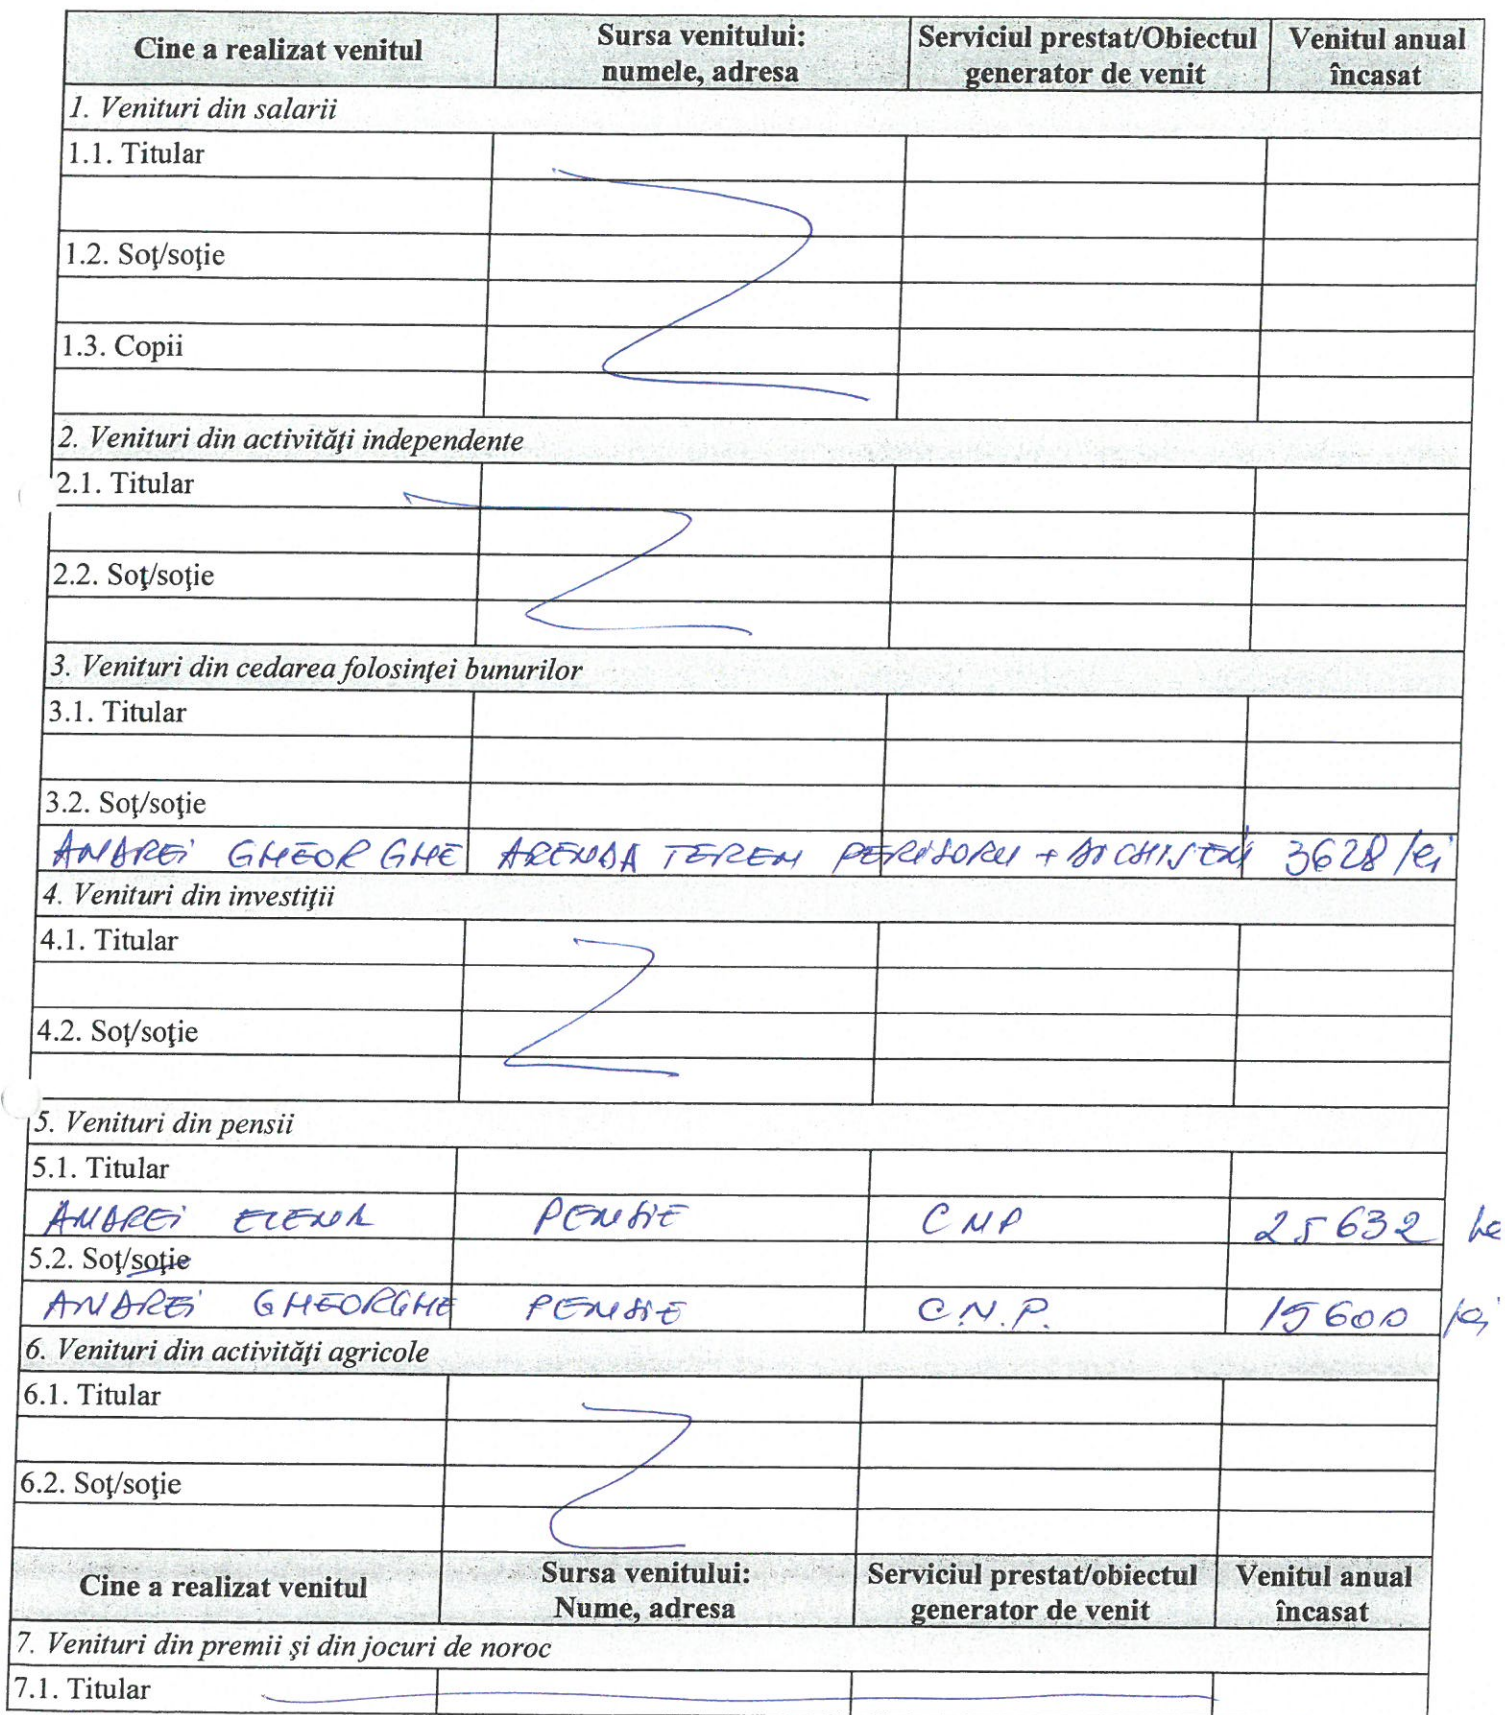 Cine a realizat venitul Sursa venitului: numele, adresa Serviciul prestat/Obiectul generator de venit Venitul anual încasat
1. Venituri din salarii
1.1. Titular
1.2. Soţ/soţie
1.3. Copii
2. Venituri din activităţi independente
2.1. Titular
2.2. Soţ/soţie
3. Venituri din cedarea folosinţei bunurilor
3.1. Titular
3.2. Soţ/soţie
ANDREI GHEORGHE ARENDA TEREN PERISORU + 3628 lei
4. Venituri din investiţii
4.1. Titular
4.2. Soţ/soţie
5. Venituri din pensii
5.1. Titular
ANDREI ELENA PENSIE CNP 25632 le
5.2. Soţ/soţie
ANDREI GHEORGHE PENSIE C.N.P. 15600 lei
6. Venituri din activităţi agricole
6.1. Titular
6.2. Soţ/soţie
Cine a realizat venitul Sursa venitului: Nume, adresa Serviciul prestat/obiectul generator de venit Venitul anual încasat
7. Venituri din premii şi din jocuri de noroc
7.1. Titular